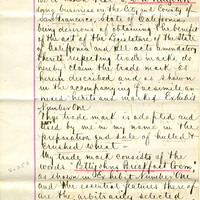 ying business in the City and County of
San Francisco, State of California
being desirous of obtaining the benefit
of the act of the Legislature of the State
of California and all acts amendatory
thereto respecting trade marks, do
hereby claim the trade mark as
herein described and as shown
in the accompanying facsimile an-
nexed hereto and marked Exhibit
Number One
This trade mark is adopted and
used by me in my name in the
preparation and sale of hulled &
crushed Wheat —
My trade mark consists of the
words "Pettijohns Breakfast Gem",
as shown in Exhibit Number One
and the essential features there
of are the arbitrarily selected